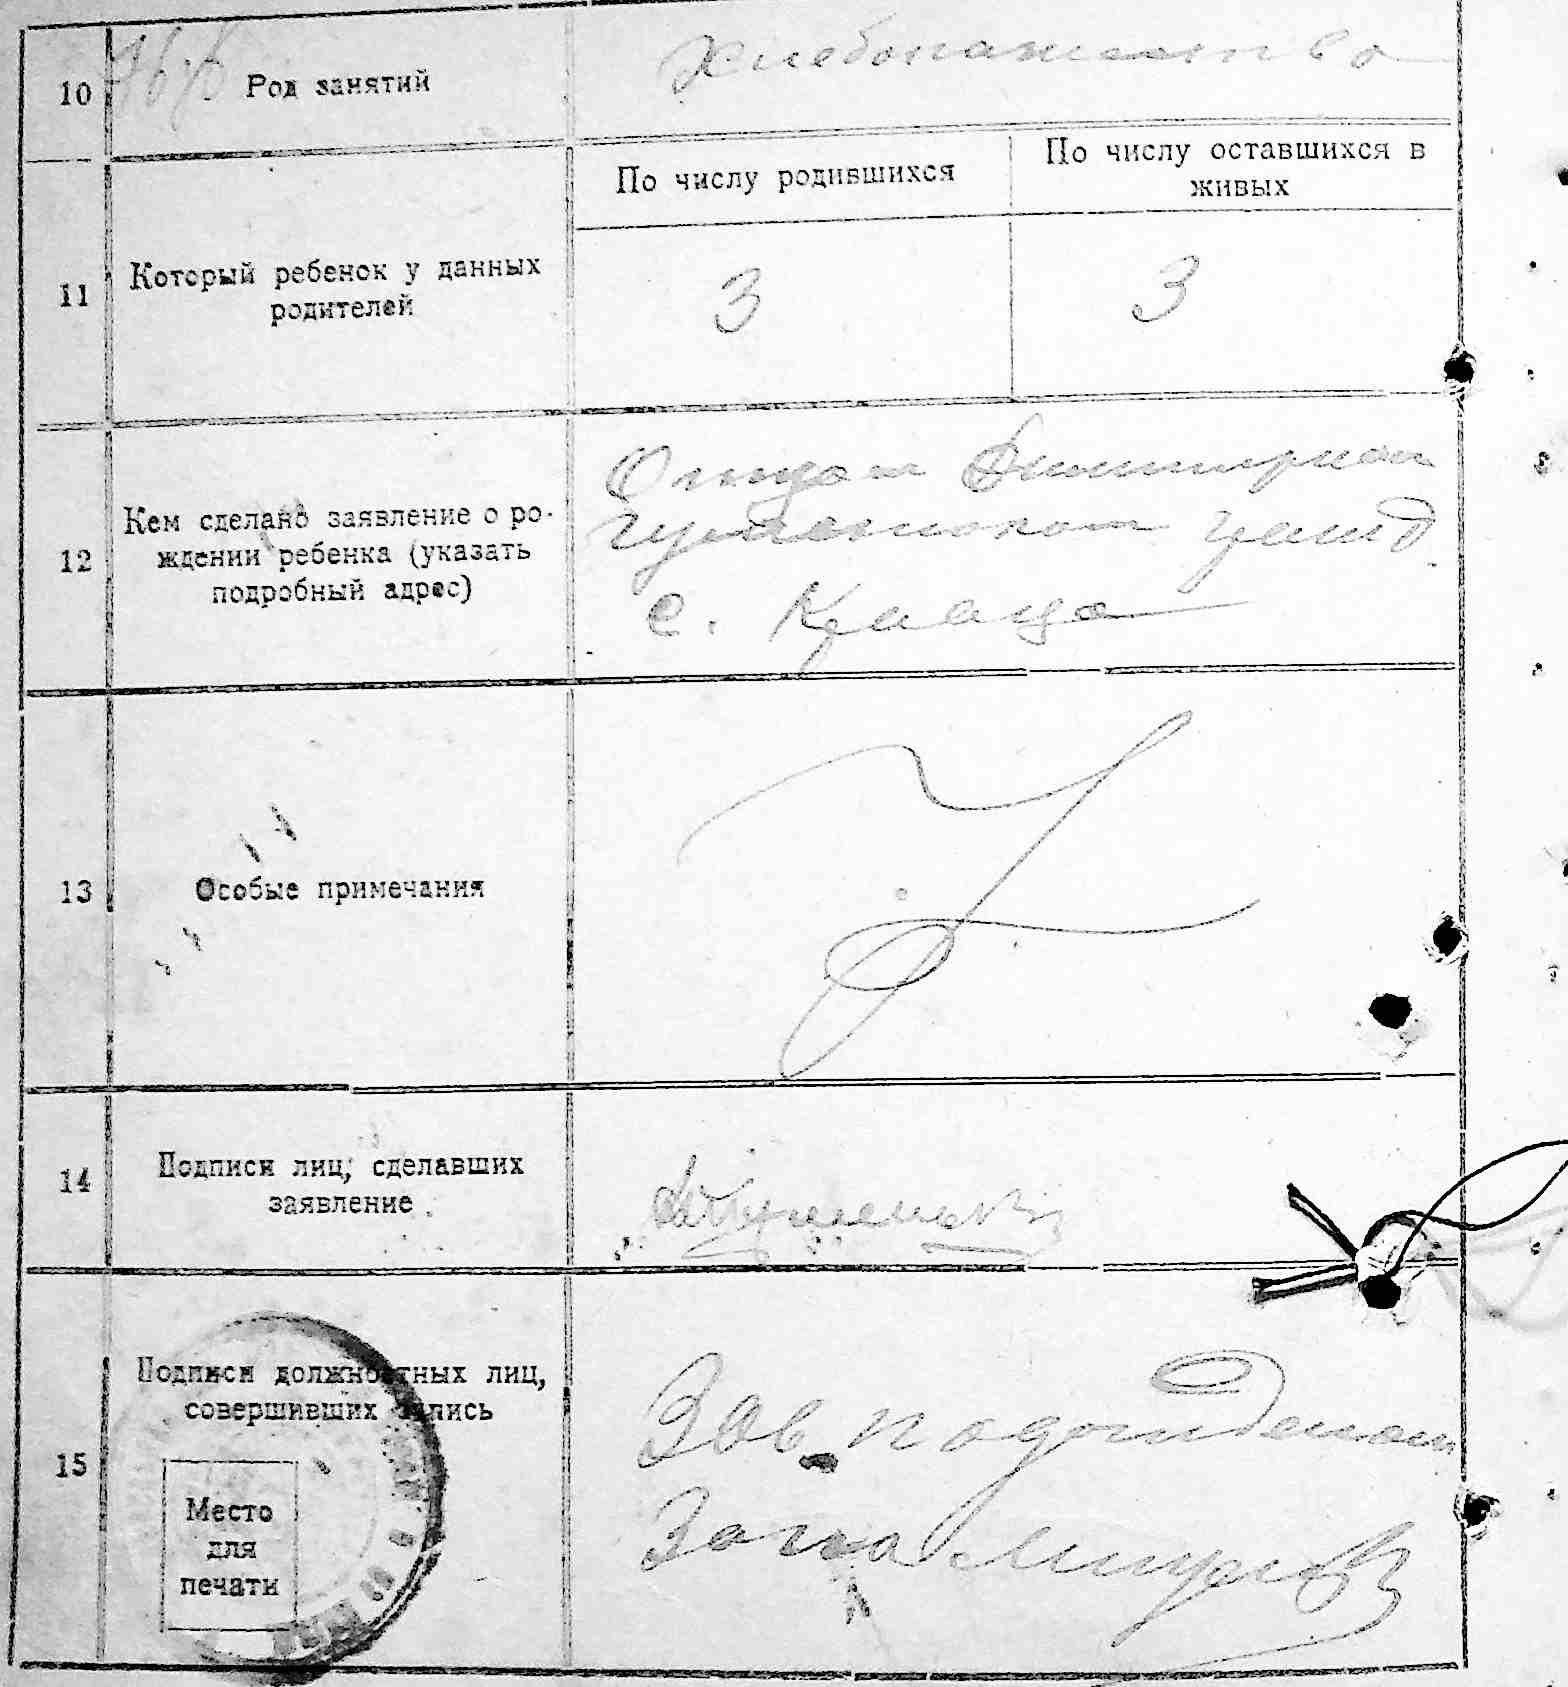 10
Род занятий
Хлебопашество
11
Который ребенок у данных
родителей
По числу родившихся
По числу оставшихся в
живых
3
3
12
Кем сделано заявление о ро-
ждении ребенка (указать
подробный адрес)
Отцом
с.
13
Особые примечания
14
Подписи лиц, сделавших
заявление
15
Подписи должностных лиц,
совершивших запись
Место
для
печати
Зав. подотделом